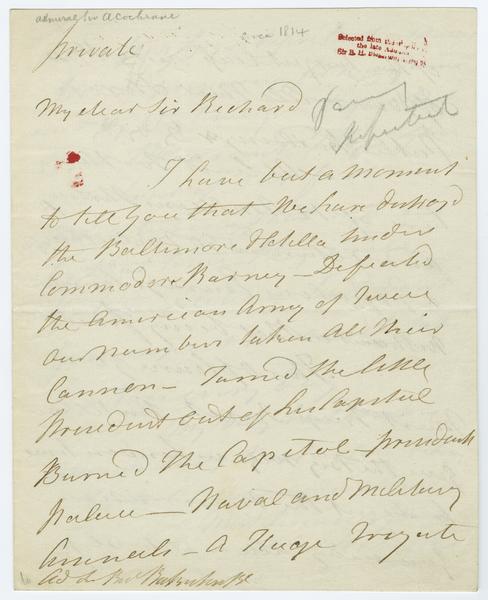 admiral Sir A Cochrane
circa 1814
Private
Selected from the
the late Admiral
Sir
My dear Sir Richard
I have but a moment
to tell you that We have destroyd
the Baltimore Flotilla under
Commodore Barney – Defeated
the American Army of Twice
our number taken All Their
Cannon – Turned The little
President out of his Capital
Burned The Capitol – presidents
Palace – Naval and Military
Arsenals – A Huge Frigate